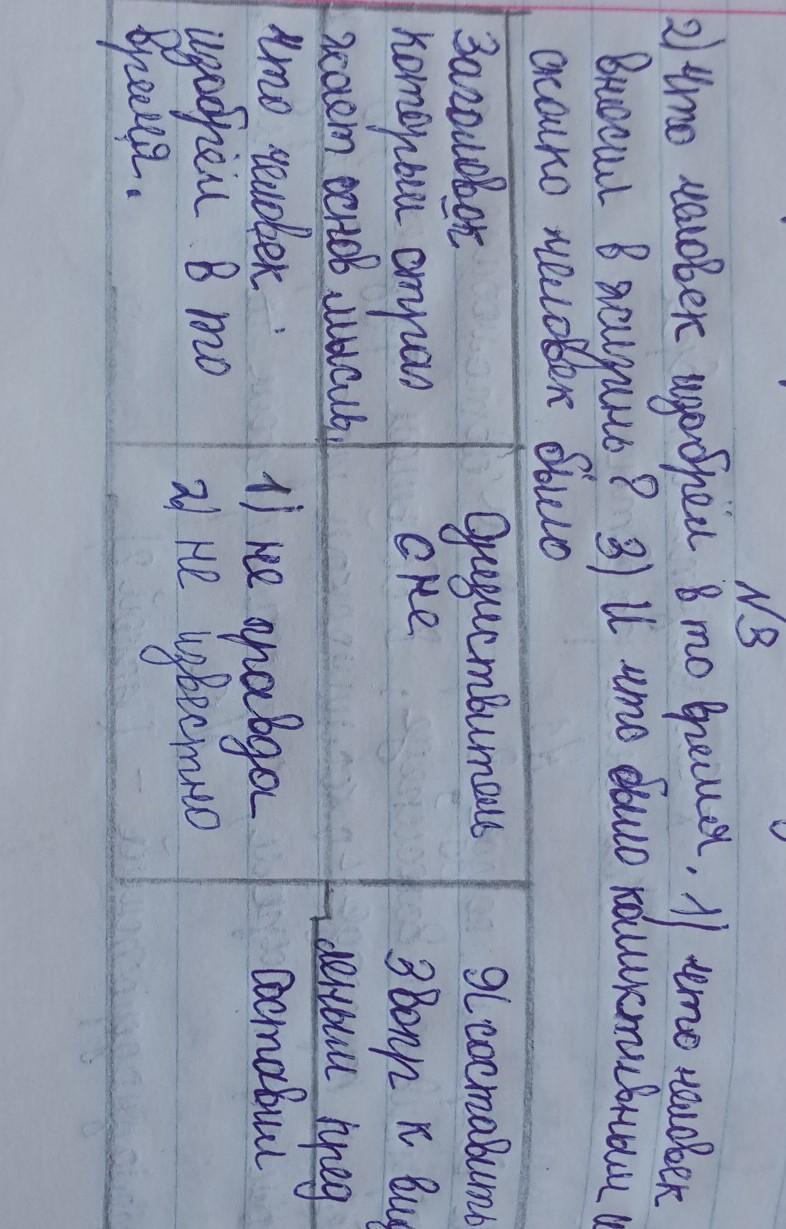 №3
2) Что человек изобрём в то время. 1) что человек
вносил в жизинь? 3) И что было каликтивным
сколко человек было
Заголовок
которыи отра
жает основ мысль.
Одеиствитель
сне
Я составить
3 вопр к вы
леным пред
что человек
изобрём в то
время.
1) не правда
2) не известно
Составил